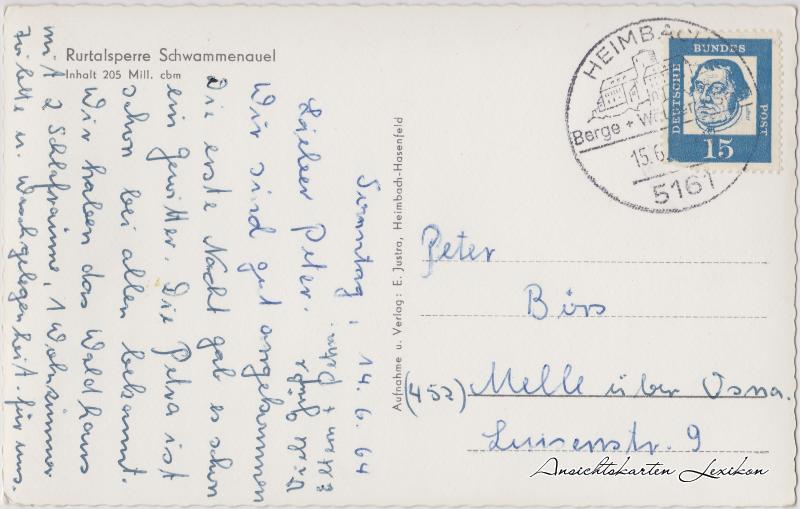 Rurtalsperre Schwammenauel
Inhalt 205 Mill. cbm
Sonntag, 14. 6. 64
Lieber Peter.
Wir sind gut angekommen
Die erste Nacht gab es schon
ein Gewitter. Die Petra ist
schon bei allen bekannt.
Wir haben das Waldhaus
mit 2 Schlafräume, 1 Wohnzimmer
Toilette u. Waschgelegenheit. für uns.
Viele Grüße
Eltern + Petra.
Aufnahme u. Verlag: E. Justra, Heimbach-Hasenfeld
HEIMBACH
Berge +
15.6.
5161
DEUTSCHE
BUNDES
POST
15
Peter
Börs
(452) Melle über Osna.
Luisenstr. 9
Ansichtskarten Lexikon